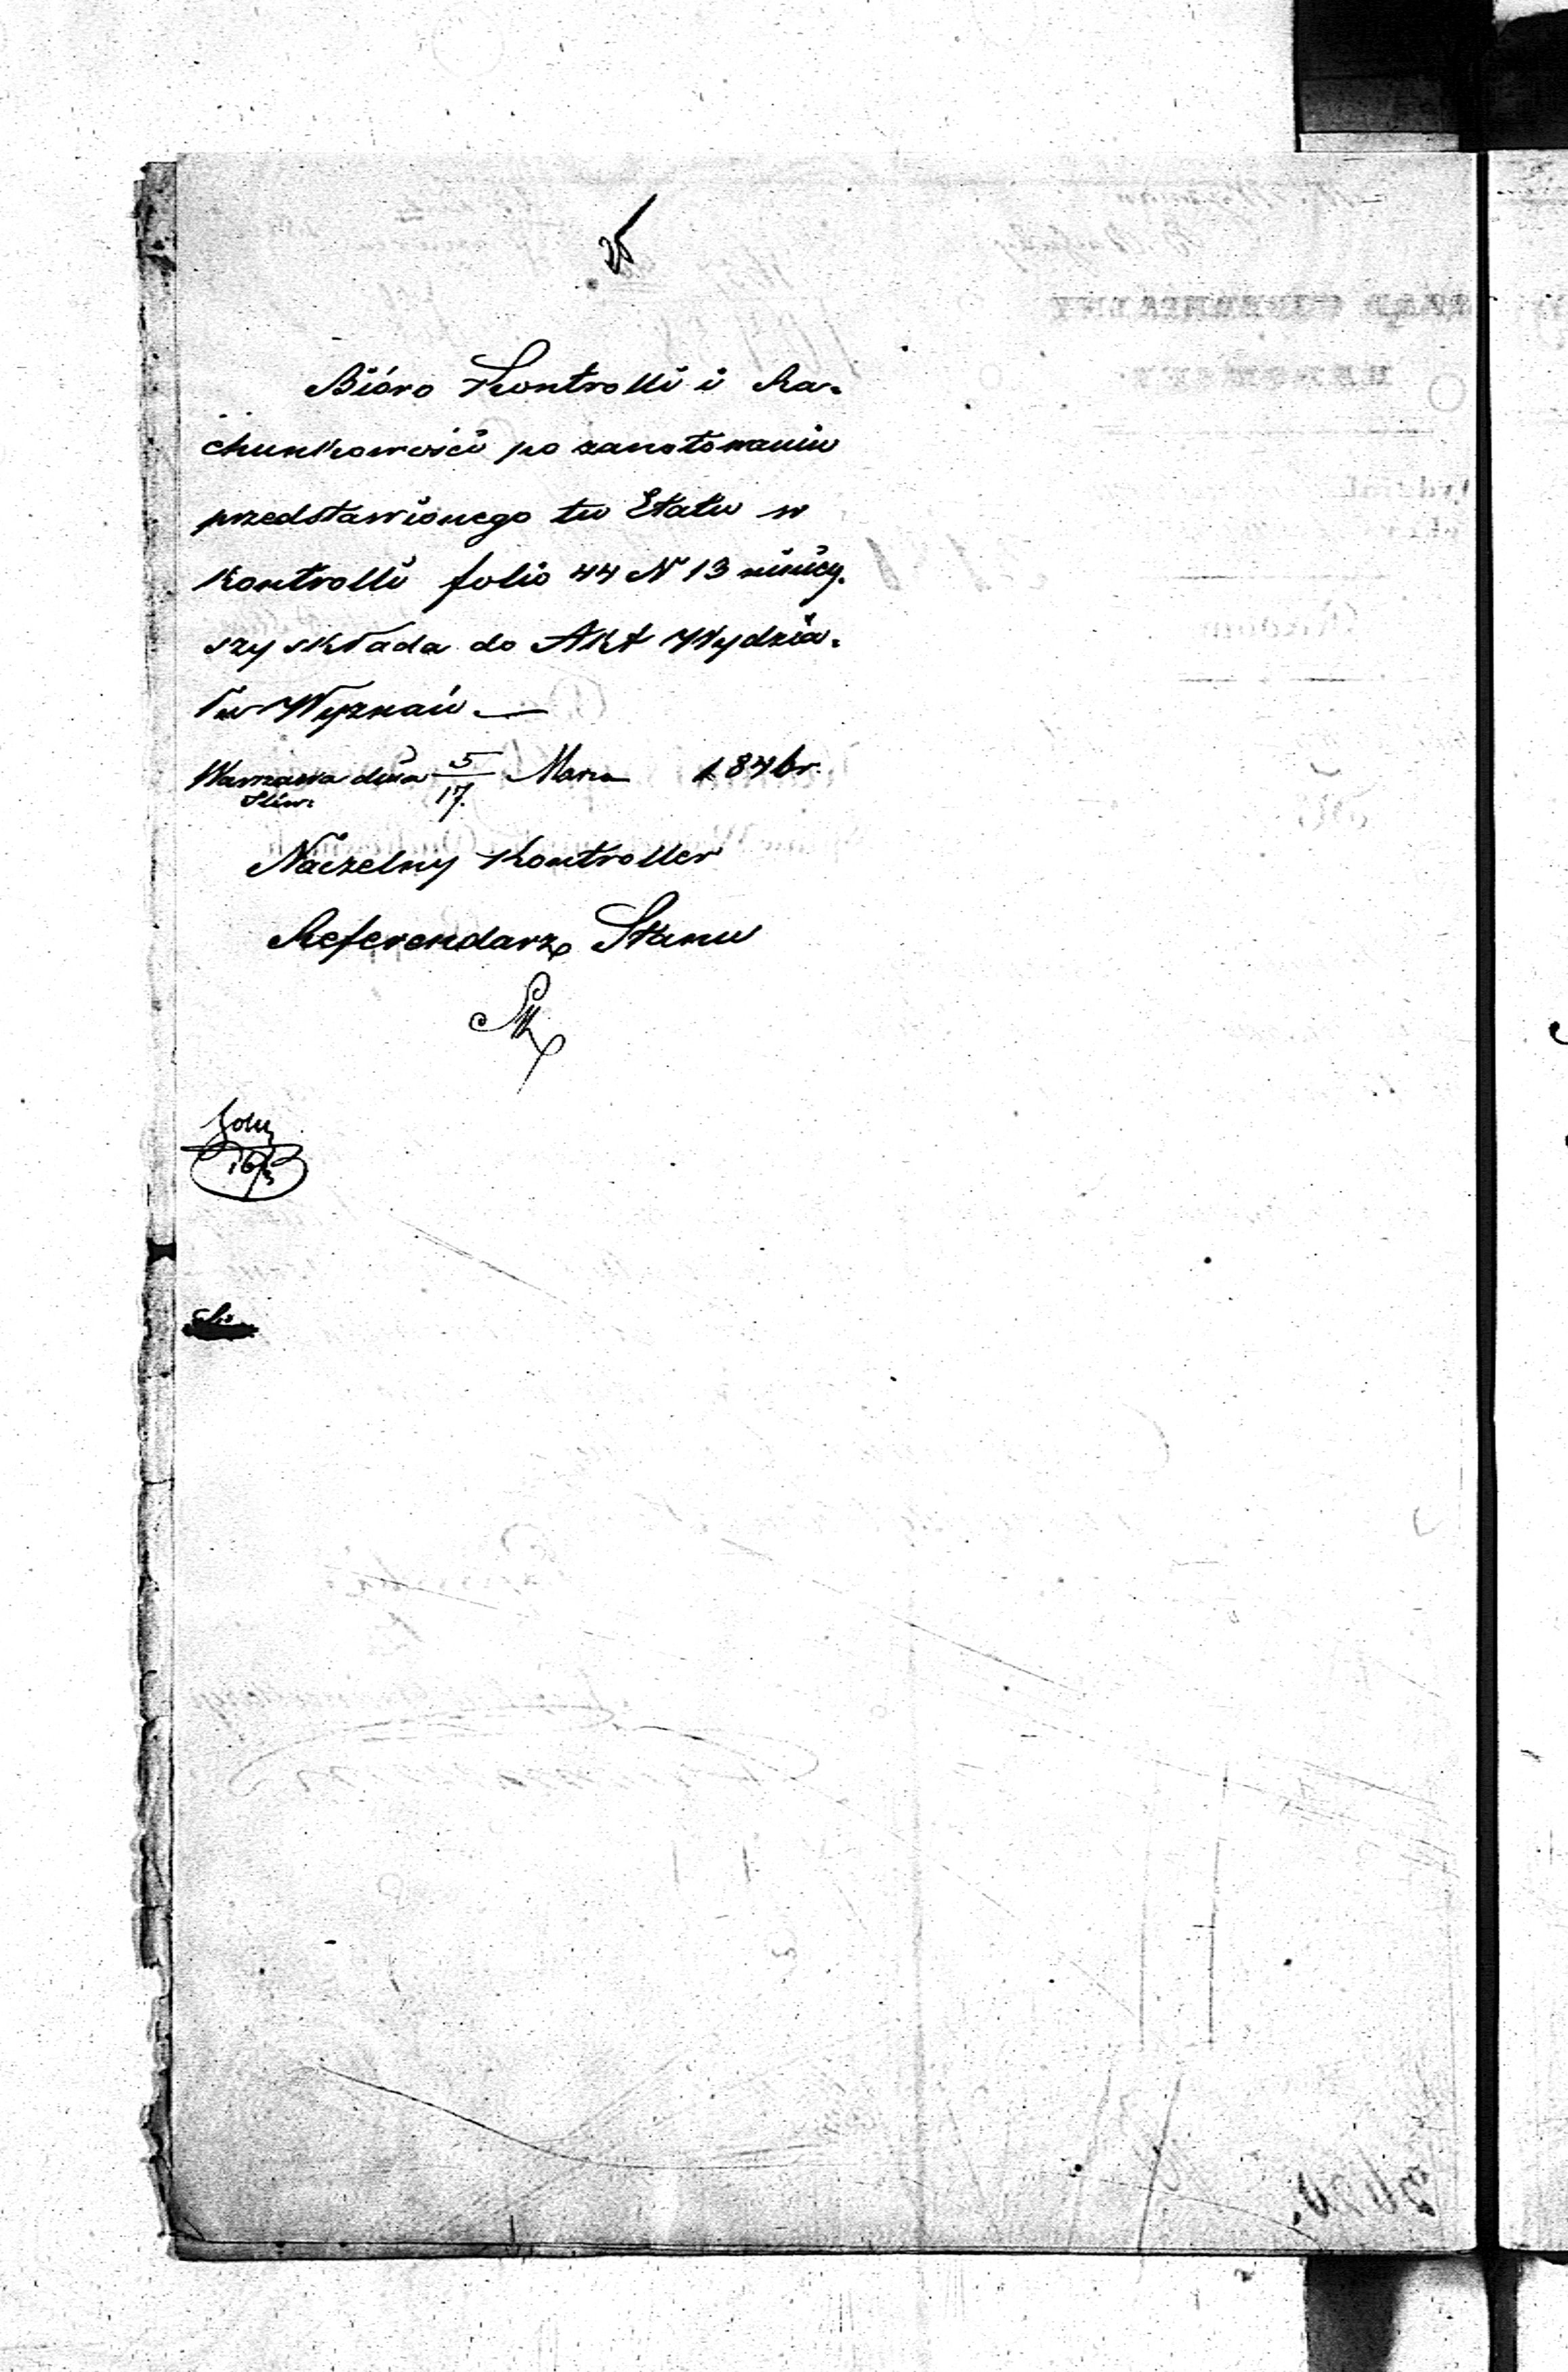 Bióro Kontrolli i Ra-
chunkowości po zanotowaniu
przedstawionego tu Etatu w
Kontrolli folio 44 N 13 niniey-
szy składa do Akt Wydzia-
łu Wyznań.—
Warszawa dnia 5/17 Marca 1846 r.
Naczelny Kontroller
Referendarz Stanu